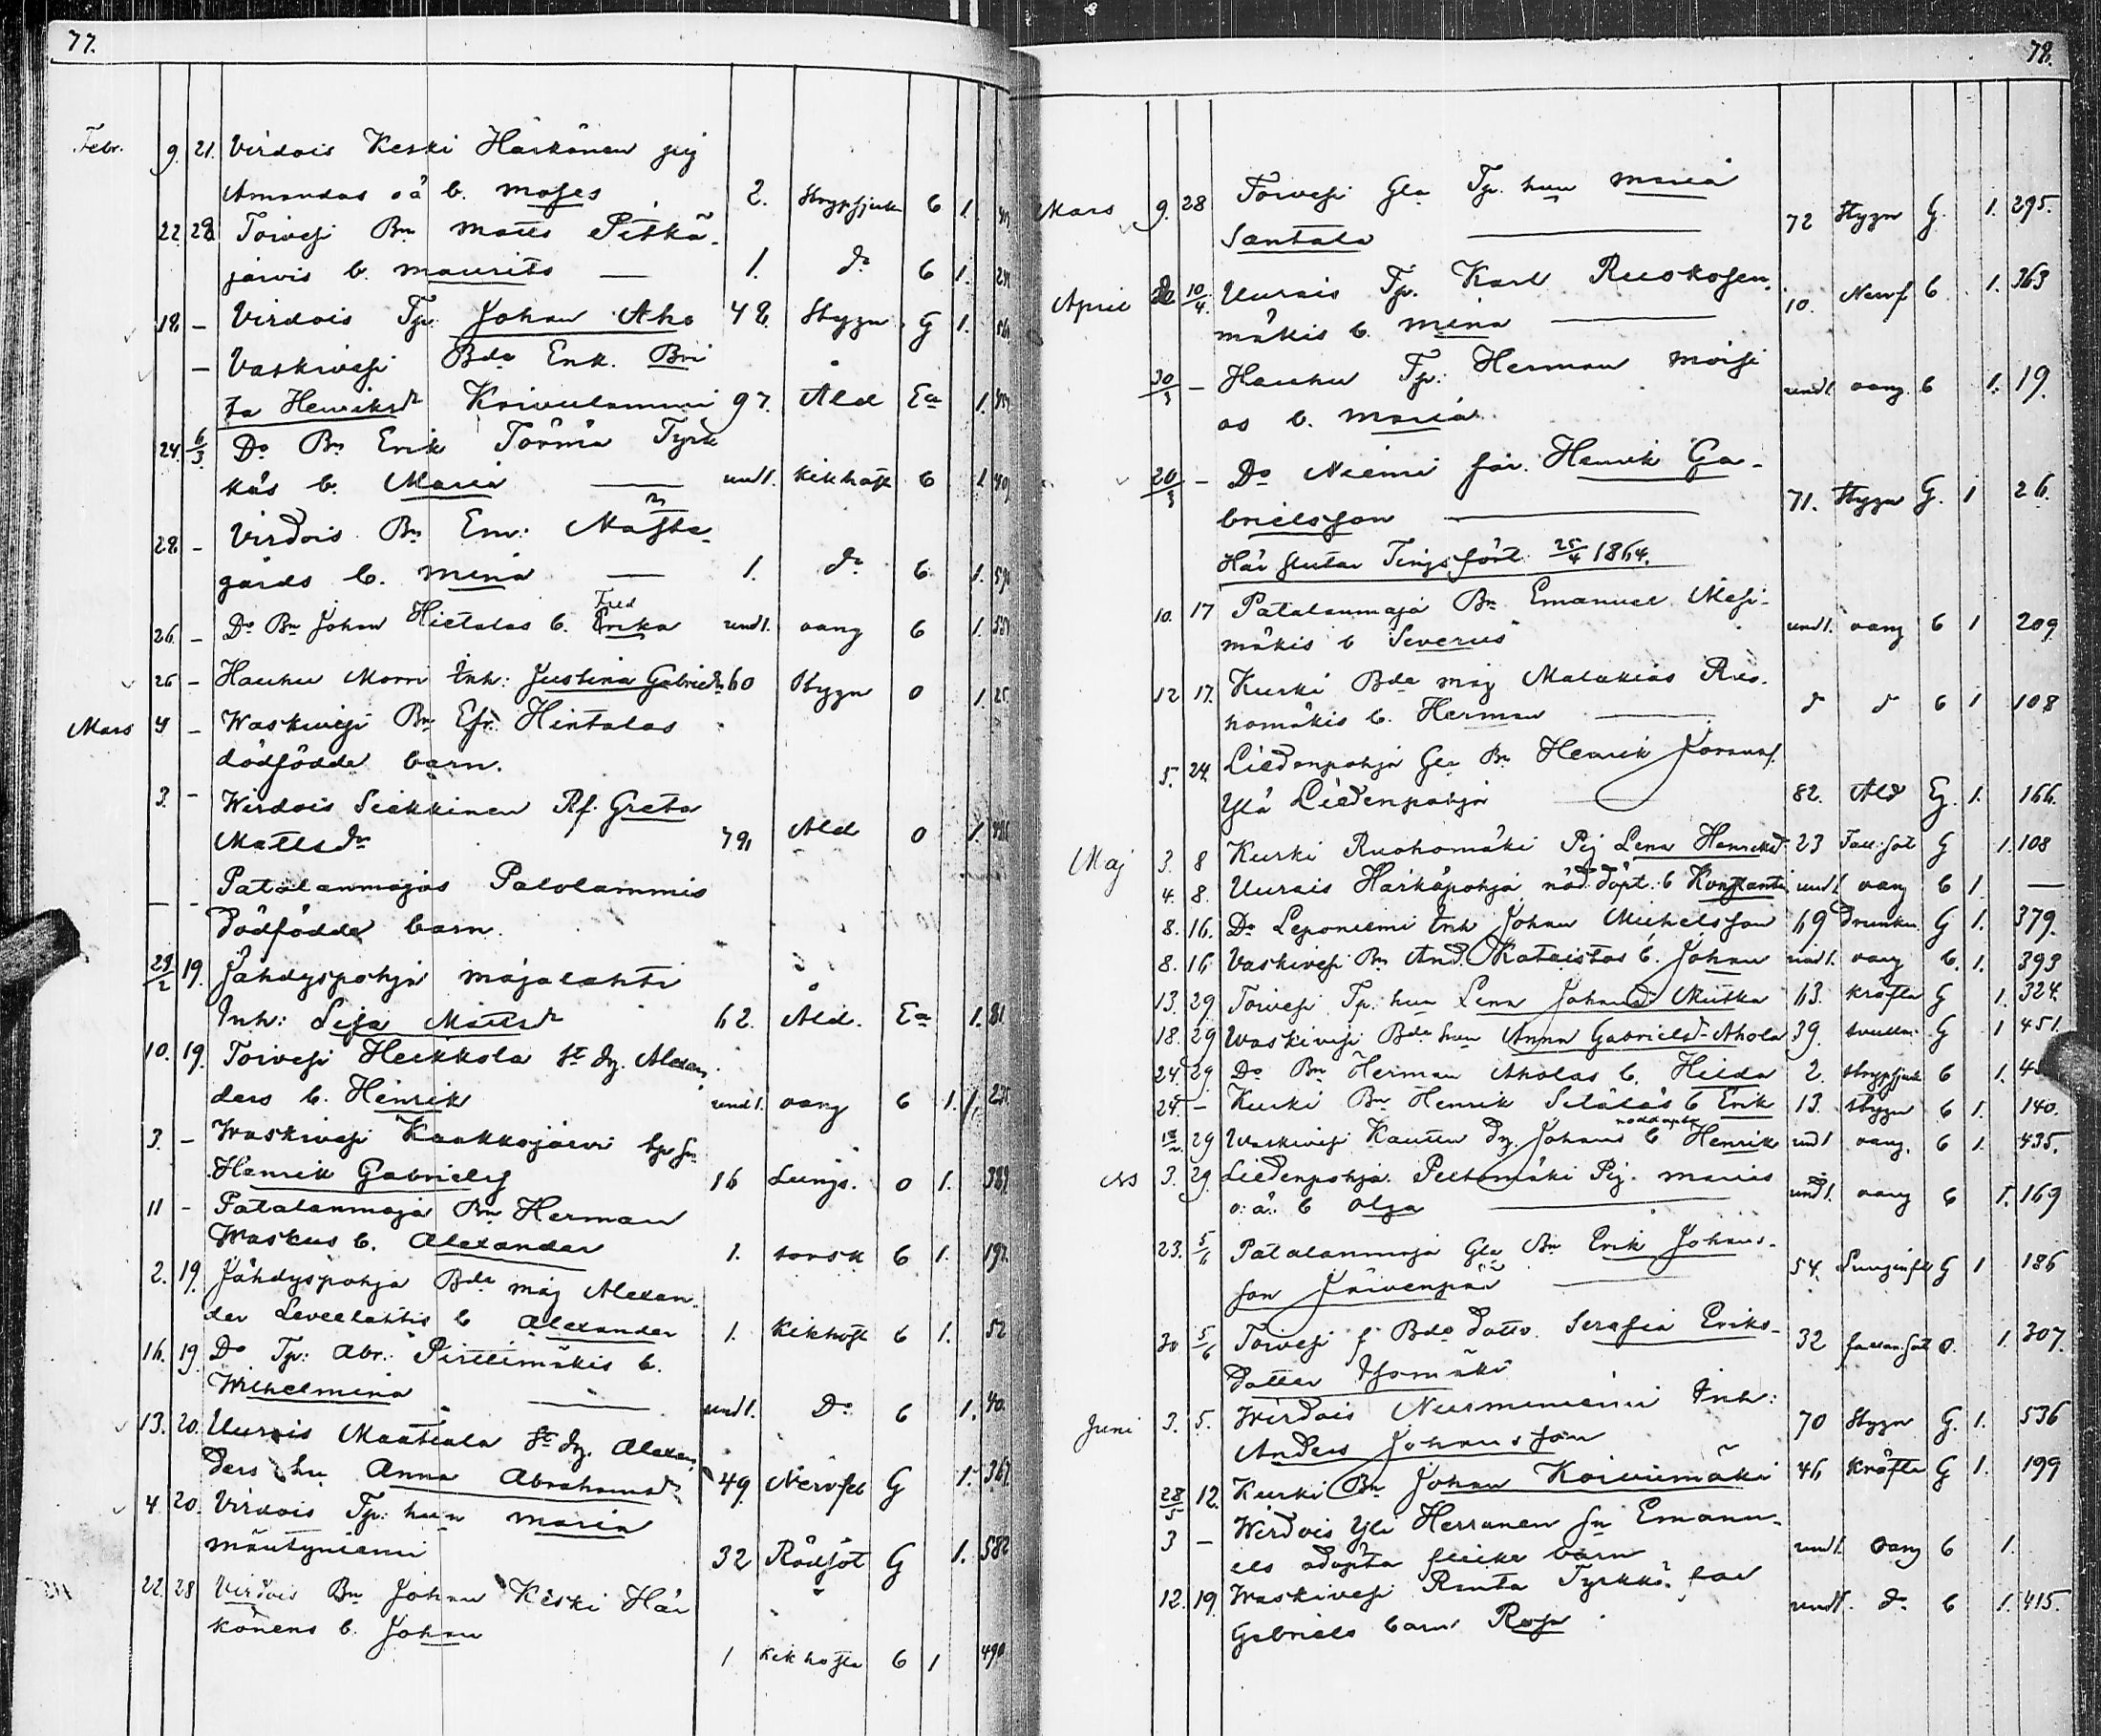 77.
Febr. 9. 21. Virdois Keski Härkönen pig
Amandas oä b. Moses 2. Strypsjuk 6 1.
22 28 Toivesi Bn Matts Pitkä-
järvis b. Maurits — 1. Do 6 1.
18 - Virdois Tp. Johan Aho 48. Styng G 1.
- Vaskivesi Bde Enk. Bri
ta Henriksdr Koivulammi 97. Ald Ea 1.
24. 6/3. Do Bn Erik Törmä Tyrk
käs b. Maria — und 1. Kikhost 6 1.
28 - Virdois Bn Em:
gårds b. Mina — 1. Do 6. 1.
26. - Do Bn Johan Hietalas b. Fred Erika und 1. oang 6 1.
26 - Hauhu Morri Inh: Justina Gabrielsdr 60 Styng 0 1. 25
Mars 4 - Waskivesi Bn Efr. Hintalas
dödfödda barn.
3. - Wirdois Siekkinen Rf. Greta
Mattsdr 79, Ald 0 1.
— - Patalanmajas Palolammis
Dödfödda barn.
29/2 19. Jähdyspohja Majalahti
Inh: Lisa Mattsdr 62. Ald. Ea 1. 81
10. 19. Toivesi Heikkola St. Dg. Alexan
ders b. Henrik und 1. oang 6 1.
3. - Waskivesi Kaakkojärvi
Henrik Gabriels 16 Lungs. 0 1. 389
11 - Patalanmaja Bn Herman
Waskus b. Alexander 1. torsk 6 1. 197.
2. 19. Jähdyspohja Bde måg Alexan-
der Leveelahtis b Alexander 1. Kikhost 6 1. 52
16. 19. Do Tp: Abr: Pirttimäkis b.
Wilhelmina — und 1. Do 6 1. 40.
13. 20. Uurais Maatiala St. Dg. Alexan
ders hu Anna Abrahamsdr 49 Nervfeb G 1. 367
4. 20. Virdois Tp: hun Maria
Mäntyniemi 32 Rödsot G 1. 582
22. 28 Virdois Bn Johan Keski Här
könens b. Johan 1 Kikhosta 6 1 490
78.
Mars 9. 28 Toivesi Gla Tp. hun Maria
Santala — 72 Styng G. 1. 295.
April 10/4. Uurais Tp. Karl Ruokosen-
mäkis b. Mina — 10. Nervf 6. 1. 363
30/3 - Hauhu Tp: Herman Moisi
os b. Maria und 1. oang. 6 1. 19.
20/3 - Do Niemi får. Henrik Ga-
brielsson — 71. Styng G. 1 26.
Här slutar Tingsfört 25/4 1864.
10. 17 Patalanmaja Bn Emanuel Mesi-
mäkis b Severus und 1. oang 6 1 209
12 17. Kurki Bde måg Malakias Ruo-
homäkis b. Herman — d d 6 1 108
5. 24. Liedenpohja Gla Bn Henrik
Ylä Liedenpohja — 82. Ald Ej. 1. 166.
Maj 3. 8 Kurki Ruohomäki Pig Lena Henriksd 23 Fall:sot G 1. 108
4. 8. Uurais Härkäpohja nöd. döpt. b Konstanti und 1 oang 6 1. —
8. 16. Do Leponiemi Inh Johan Michelsson 69 Drunkn. G 1. 379.
8. 16 Vaskivesi Bn And. Kataistos b. Johan und 1. oang 6. 1. 393
13. 29. Toivesi Tp: hun Lena Johansdr Mutka 63. Kräfta G 1. 324.
18. 29 Waskivesi Bde hun Anna Gabrielsdr Ahola 39. G 1 451.
24. 29. Do Bn Herman Aholas b. Hilda 2. Strypsjuk 6 1.
24. - Kurki Bn Henrik Seläläs b Erik 13. Styng 6 1. 140.
29 Waskivesi Kautta Dg. Johans b nöddöpta Henrik und 1 oang. 6 1. 435.
3. 29. Liedenpohja Peltomäki Pig. Marias
o: ä: b Olga — und 1. oang 6 1. 169
23. 5/6 Patalanmaja Gla Bn Erik Johans-
son Järvenpää — 54. Lunginfl G 1 186
30 5/6 Toivesi f Bde Dottr. Serafia Eriks-
dotter 32 fallan.sot 0. 1. 307.
Juni 3. 5. Wirdois Nurmenniemi Inh:
Anders Johansson 70 Styng G. 1. 536
28/5 12. Kurki Bn Johan Koivumäki 46 Kräfta G 1. 199
3 - Wirdois Yli Herranen sn Emanu-
els odöpta flicke barn und 1. oang 6 1.
12. 19. Waskivesi Ranta Tyrkkö.
Gabriels barn Rosa und 1. Do 6 1. 415.